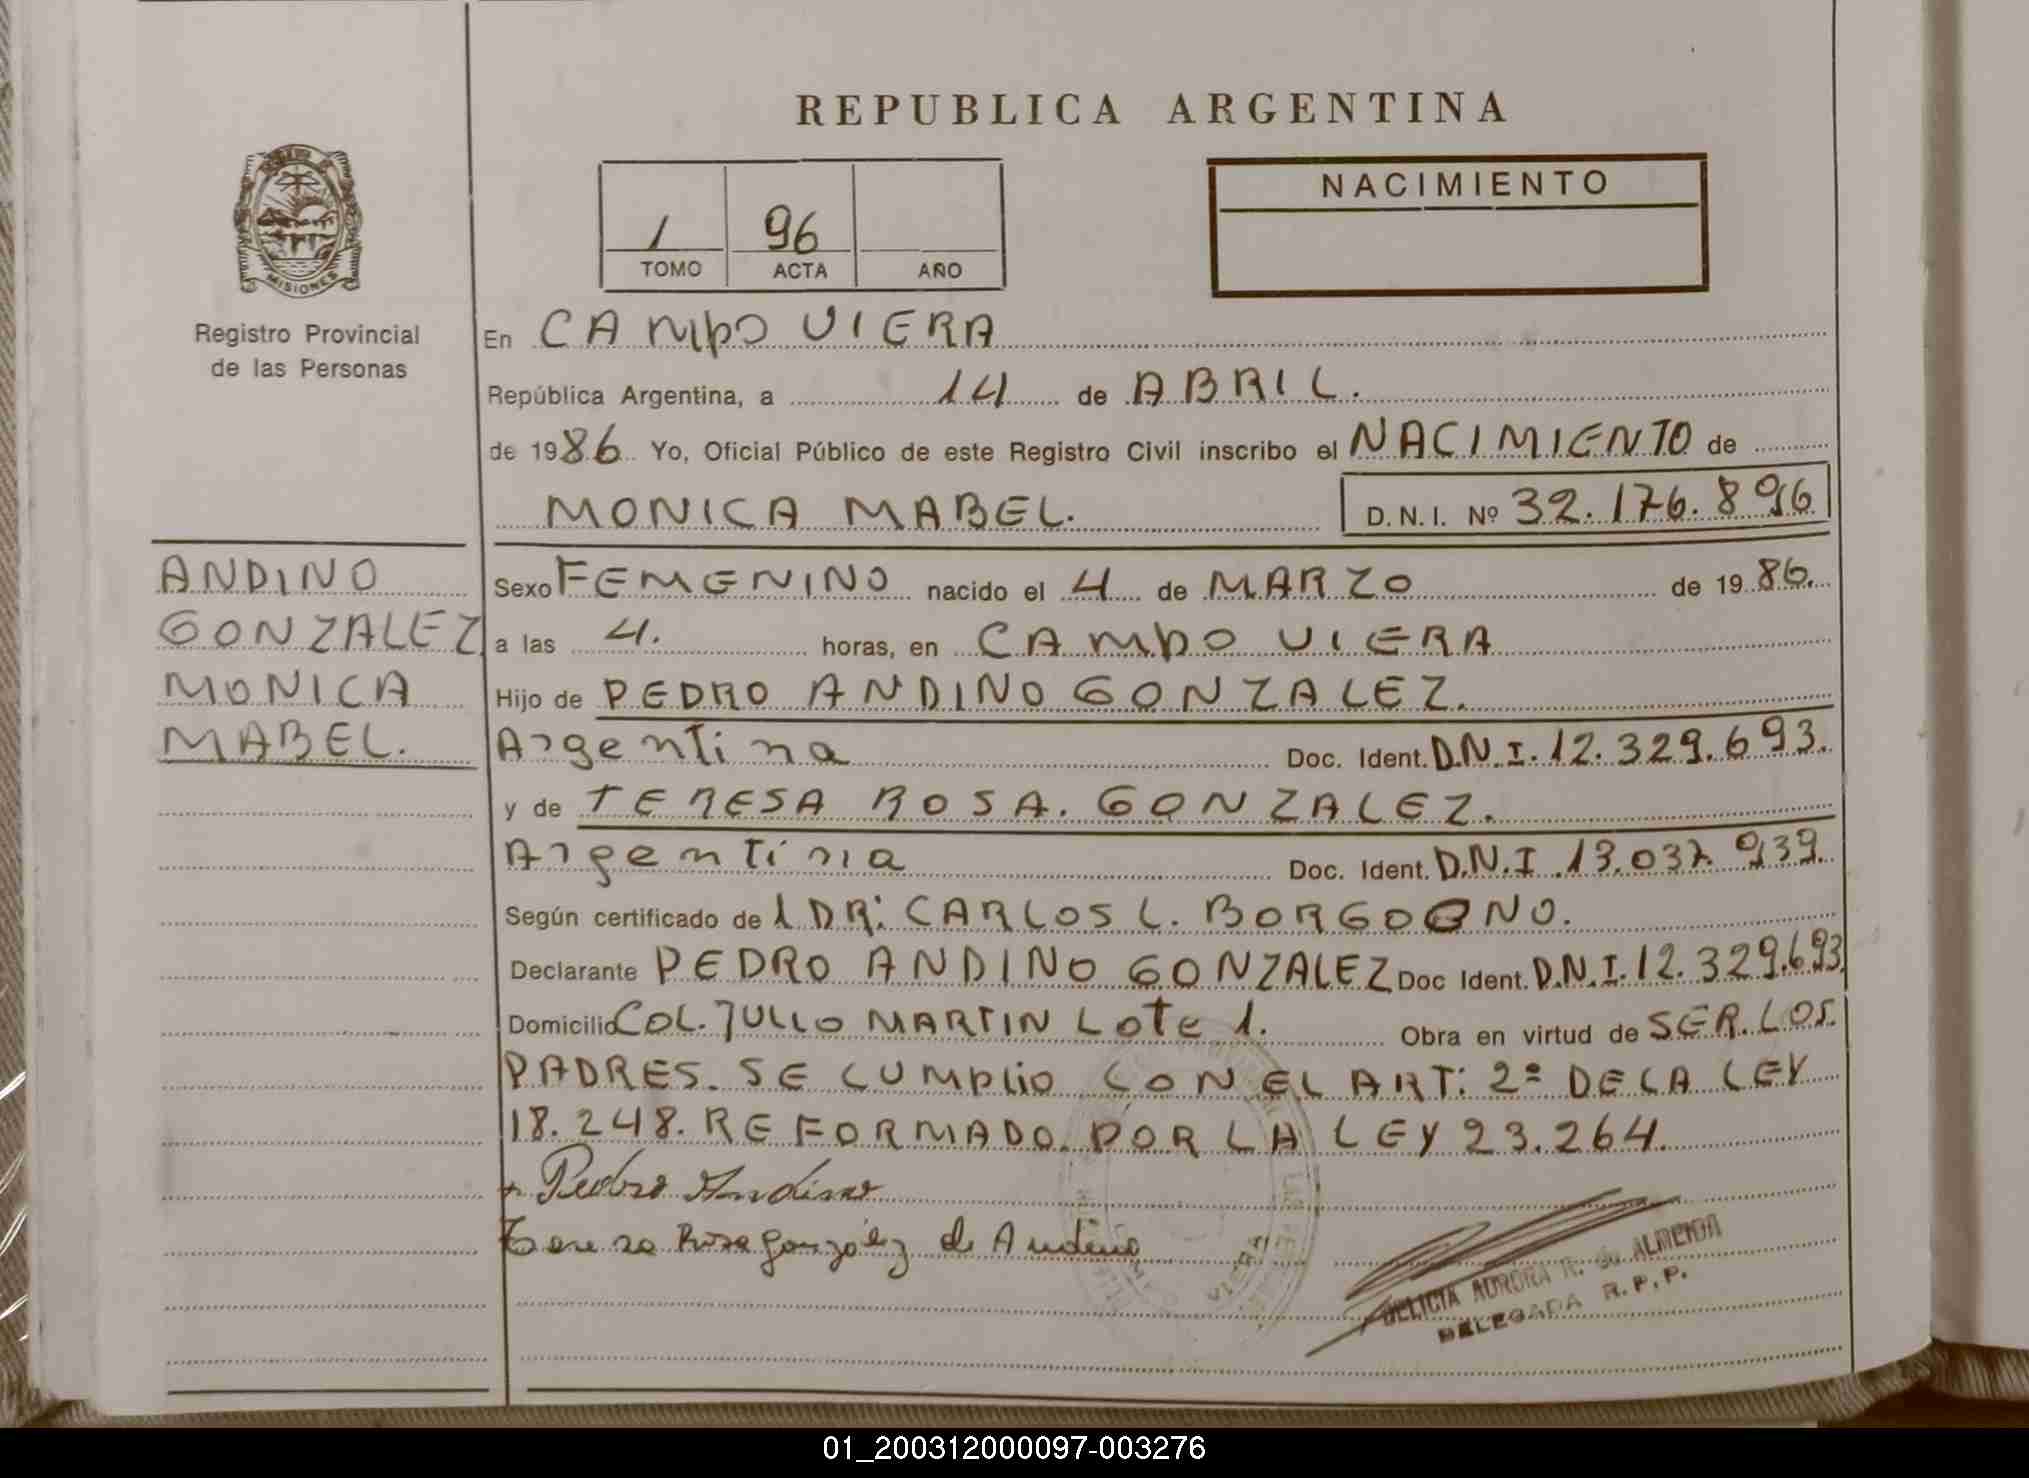 REPUBLICA ARGENTINA
NACIMIENTO
1 96
TOMO ACTA AÑO
MISIONES
Registro Provincial
de las Personas
En CAMPO VIERA
República Argentina, a 14 de ABRIL.
de 1986 Yo, Oficial Público de este Registro Civil inscribo el NACIMIENTO de
MONICA MABEL. D.N.I. Nº 32.176.896
ANDINO
GONZALEZ
MONICA
MABEL.
Sexo FEMENINO nacido el 4 de MARZO de 1986.
a las 4. horas, en CAMPO VIERA
Hijo de PEDRO ANDINO GONZALEZ.
Argentina Doc. Ident. D.N.I. 12.329.693.
y de TERESA ROSA. GONZALEZ.
Argentina Doc. Ident. D.N.I. 13.037.939.
Según certificado de 1 DR: CARLOS L. BORGOGNO.
Declarante PEDRO ANDINO GONZALEZ Doc Ident. D.N.I. 12.329.693.
Domicilio COL. JULLO MARTIN LOTE 1. Obra en virtud de SER. LOS.
PADRES. SE CUMPLIO CON EL ART: 2º DE LA LEY
18.248. REFORMADO. POR LA LEY 23.264.
Pedro Andino
Teresa Rosa gonzález de Andino
VIERA
DELICIA AURORA R. de ALMEIDA
DELEGADA R.P.P.
01_200312000097-003276